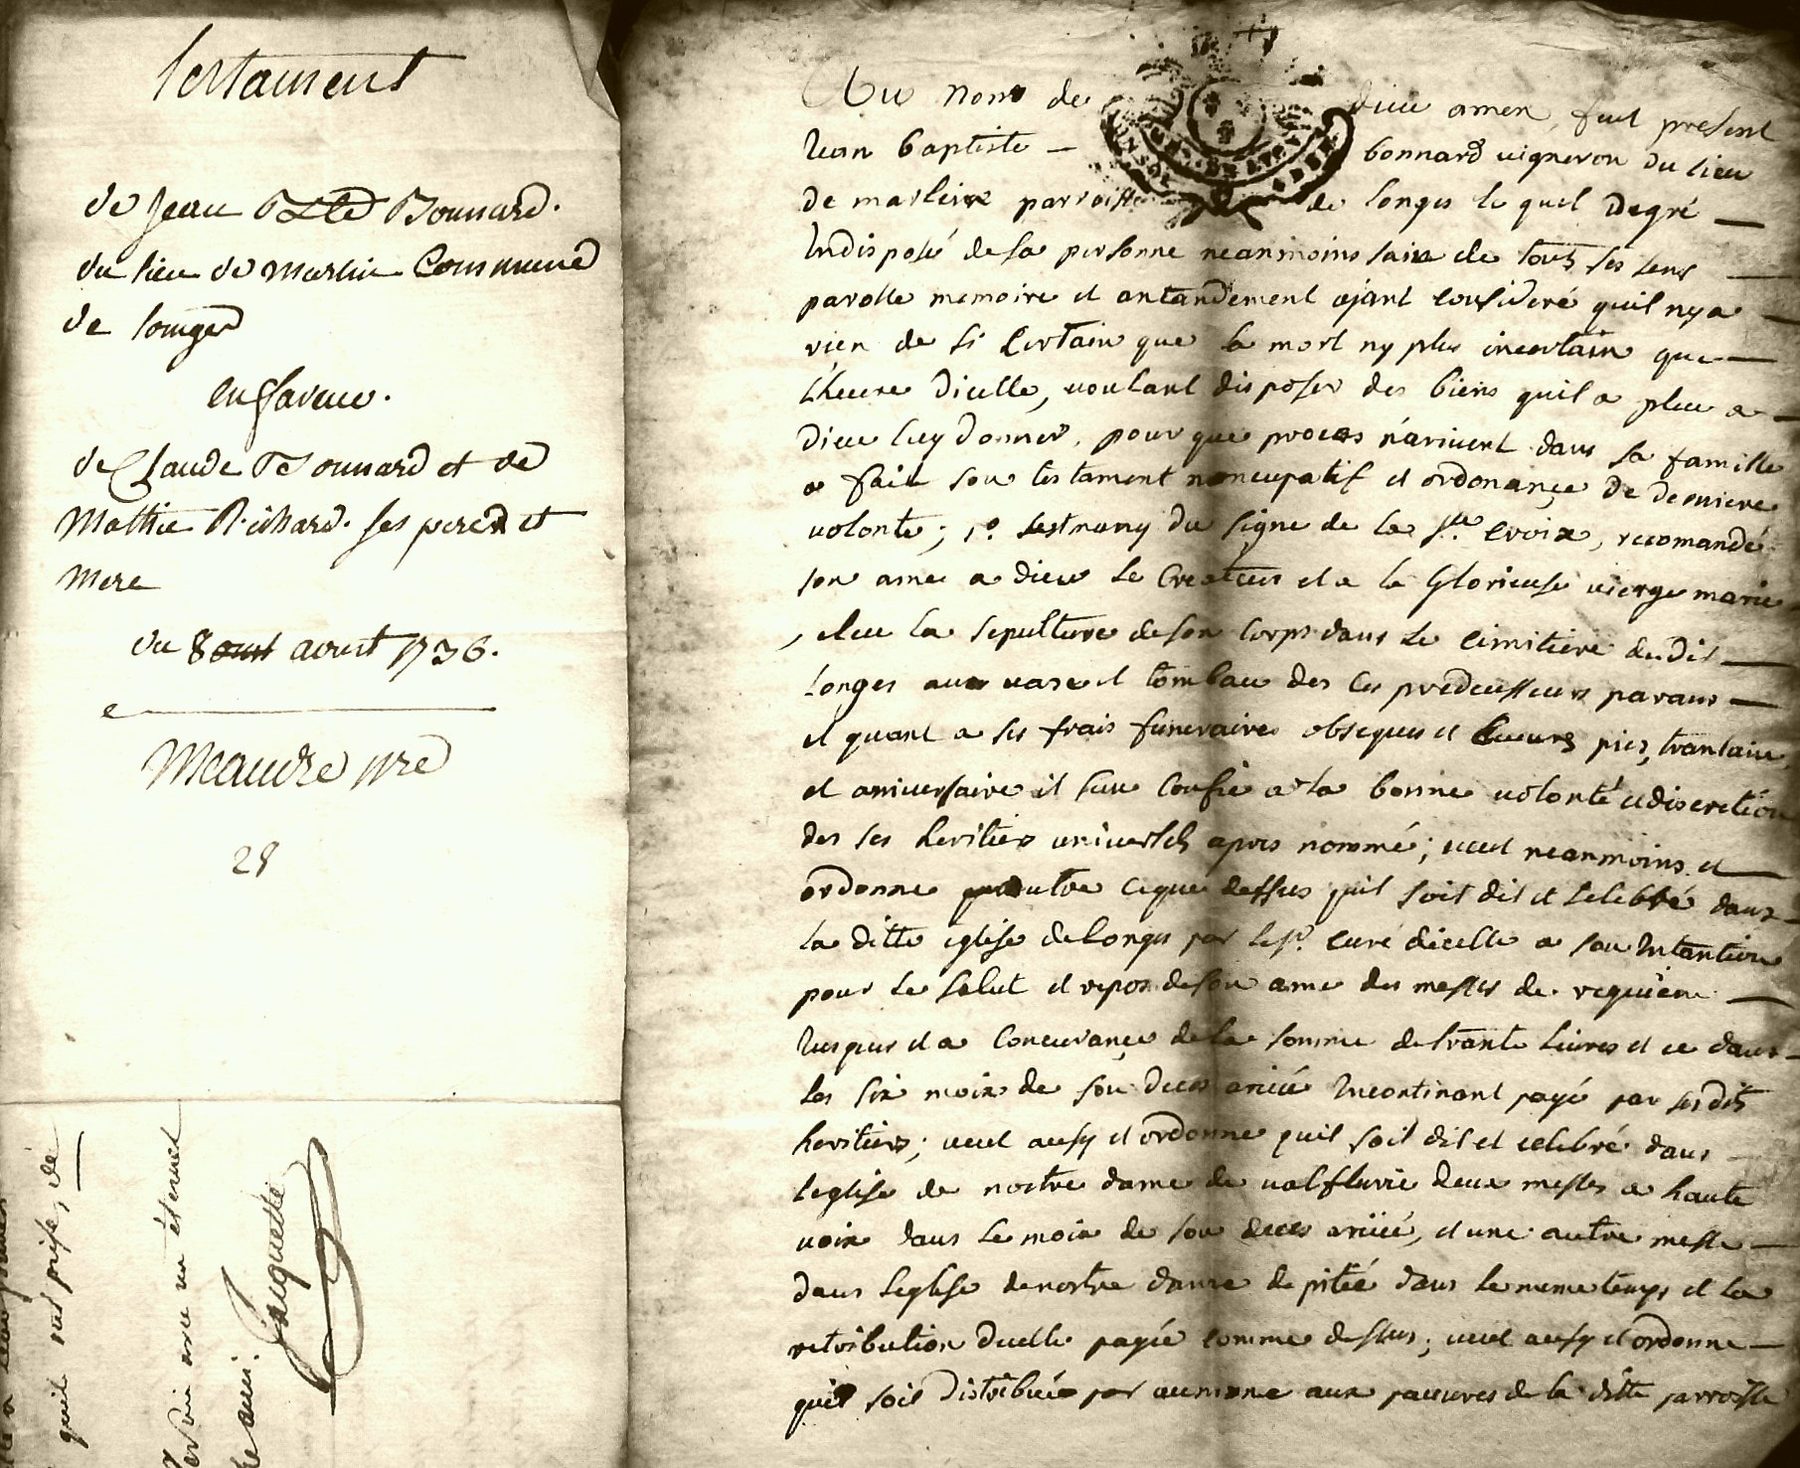 Testament
de Jean Bte Bonnard.
du lieu de Marlin Commune
de longes
en faveur.
de Claude Bonnard et de
Mathie Richard. ses pere et
mere
du 8 aout avust 1736.
Meaudre nre
28
quil soit prise, de
Jaquette
Au nom de dieu amen, fut present
Jean baptiste bonnard vigneron du lieu
de marlin parroisse de longes le quel degré
Indisposé de sa personne neanmoins sain de touts ses sens
parolle memoire et antandement ajant consideré quil nya
rien de si certain que la mort ny plus incertain que
lheure dicelle, voulant disposer des biens quil a pleu a
Dieu luy donner, pour que proces narivent dans sa famille
a fait son testament noncupatif et ordonançe de derniere
volonte; 1o. sest muny du signe de la Ste. croix, recomandé
son ame a dieu le Createur et a la Glorieuse vierge marie
, eleu la sepulture de son corps dans le cimitiere dudit
Longes au vase et tombau des ces predecesseurs parans
et quant a ses frais funeraires obseques et heuvres pies, trantaine,
et aniversaire il sen confie a la bonne volonté et discretion
des ses heritiers universels apres nommé; veut neanmoins et
ordonne quoutre ceque dessus quil soit dit et selebré dans
la ditte eglise de Longes par le sr. curé dicelle a son Intantion
pour le salut et repos de son ame des messes de requiem
Jusques et a concurançe de la somme de trante livres et ce dans
les six moix de son deces arivé Incontinant payé par ses dits
heritiers; veut ausy et ordonne quil soit dit et celebré dans
leglise de nostre dame de valfluvie deux messes a haute
voix dans le moix de son deces arivé, et une autre messe
dans leglise de nostre dame de pitié dans le meme temps et la
retribution dicelle payée comme dessus; veut ausy et ordonne
quil soit distribuée par aumone aux pauvres de la ditte parroisse